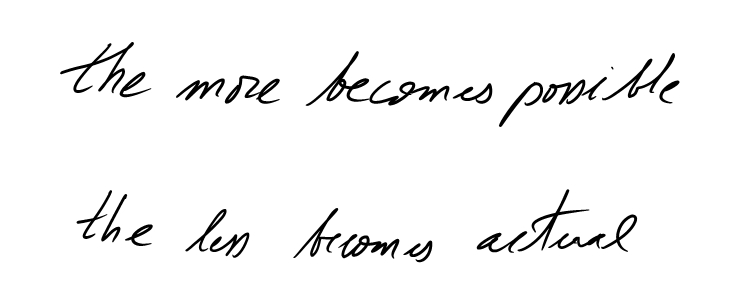 the more becomes possible
the less becomes actual